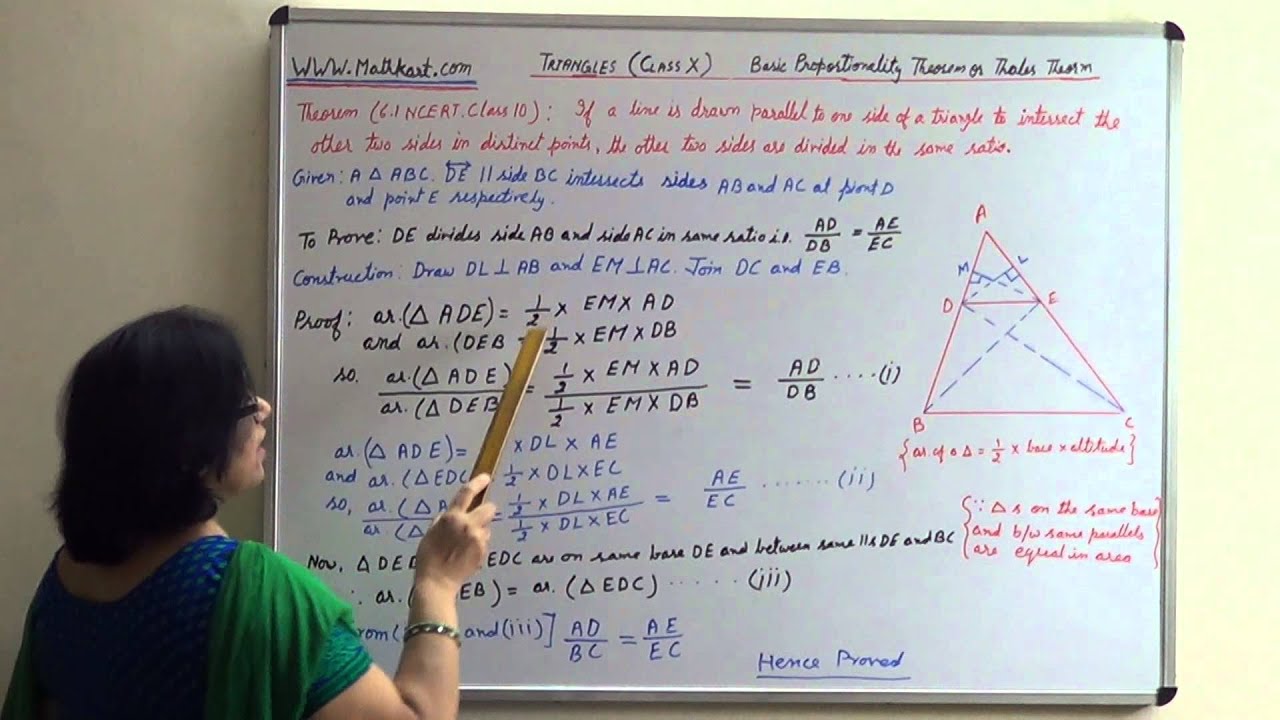 WWW.Mathkart.com TRIANGLES (CLASS X) Basic Proportionality Theorem or Thales Theorm
Theorem (6.1 NCERT.Class 10): If a line is drawn parallel to one side of a triangle to intersect the
other two sides in distinct points, the other two sides are divided in the same ratio.
Given: A △ ABC. DE || side BC intersects sides AB and AC at point D
and point E respectively.
To Prove: DE divides side AB and side AC in same ratio i.e. AD/DB = AE/EC
Construction: Draw DL ⊥ AB and EM ⊥ AC. Join DC and EB.
Proof: ar.(△ ADE) = 1/2 × EM × AD
and ar.(DEB = 1/2 × EM × DB
so, ar.(△ ADE)/ar.(△ DEB = 1/2 × EM × AD / 1/2 × EM × DB = AD/DB ....(i)
ar.(△ ADE) = × DL × AE
and ar.(△ EDC) 1/2 × DL × EC
so, ar.(△ A / ar.(△ = 1/2 × DL × AE / 1/2 × DL × EC = AE/EC .......(ii)
Now, △ DE EDC are on same base DE and between same ||s DE and BC
ar.( EB) = ar.(△ EDC) ..... (iii)
rom ( and (iii)] AD/BC = AE/EC
Hence Proved
A
M L
D E
B C
{ar. of a △ = 1/2 × base × altitude}
{∵ △s on the same base
and b/w same parallels
are equal in area}